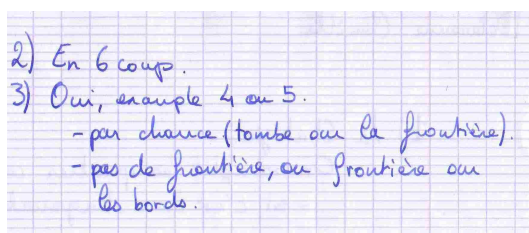 2) En 6 coup.
3) Oui, example 4 ou 5.
- par chance (tombe sur la frontière).
- pas de frontière, ou frontière sur
les bords.